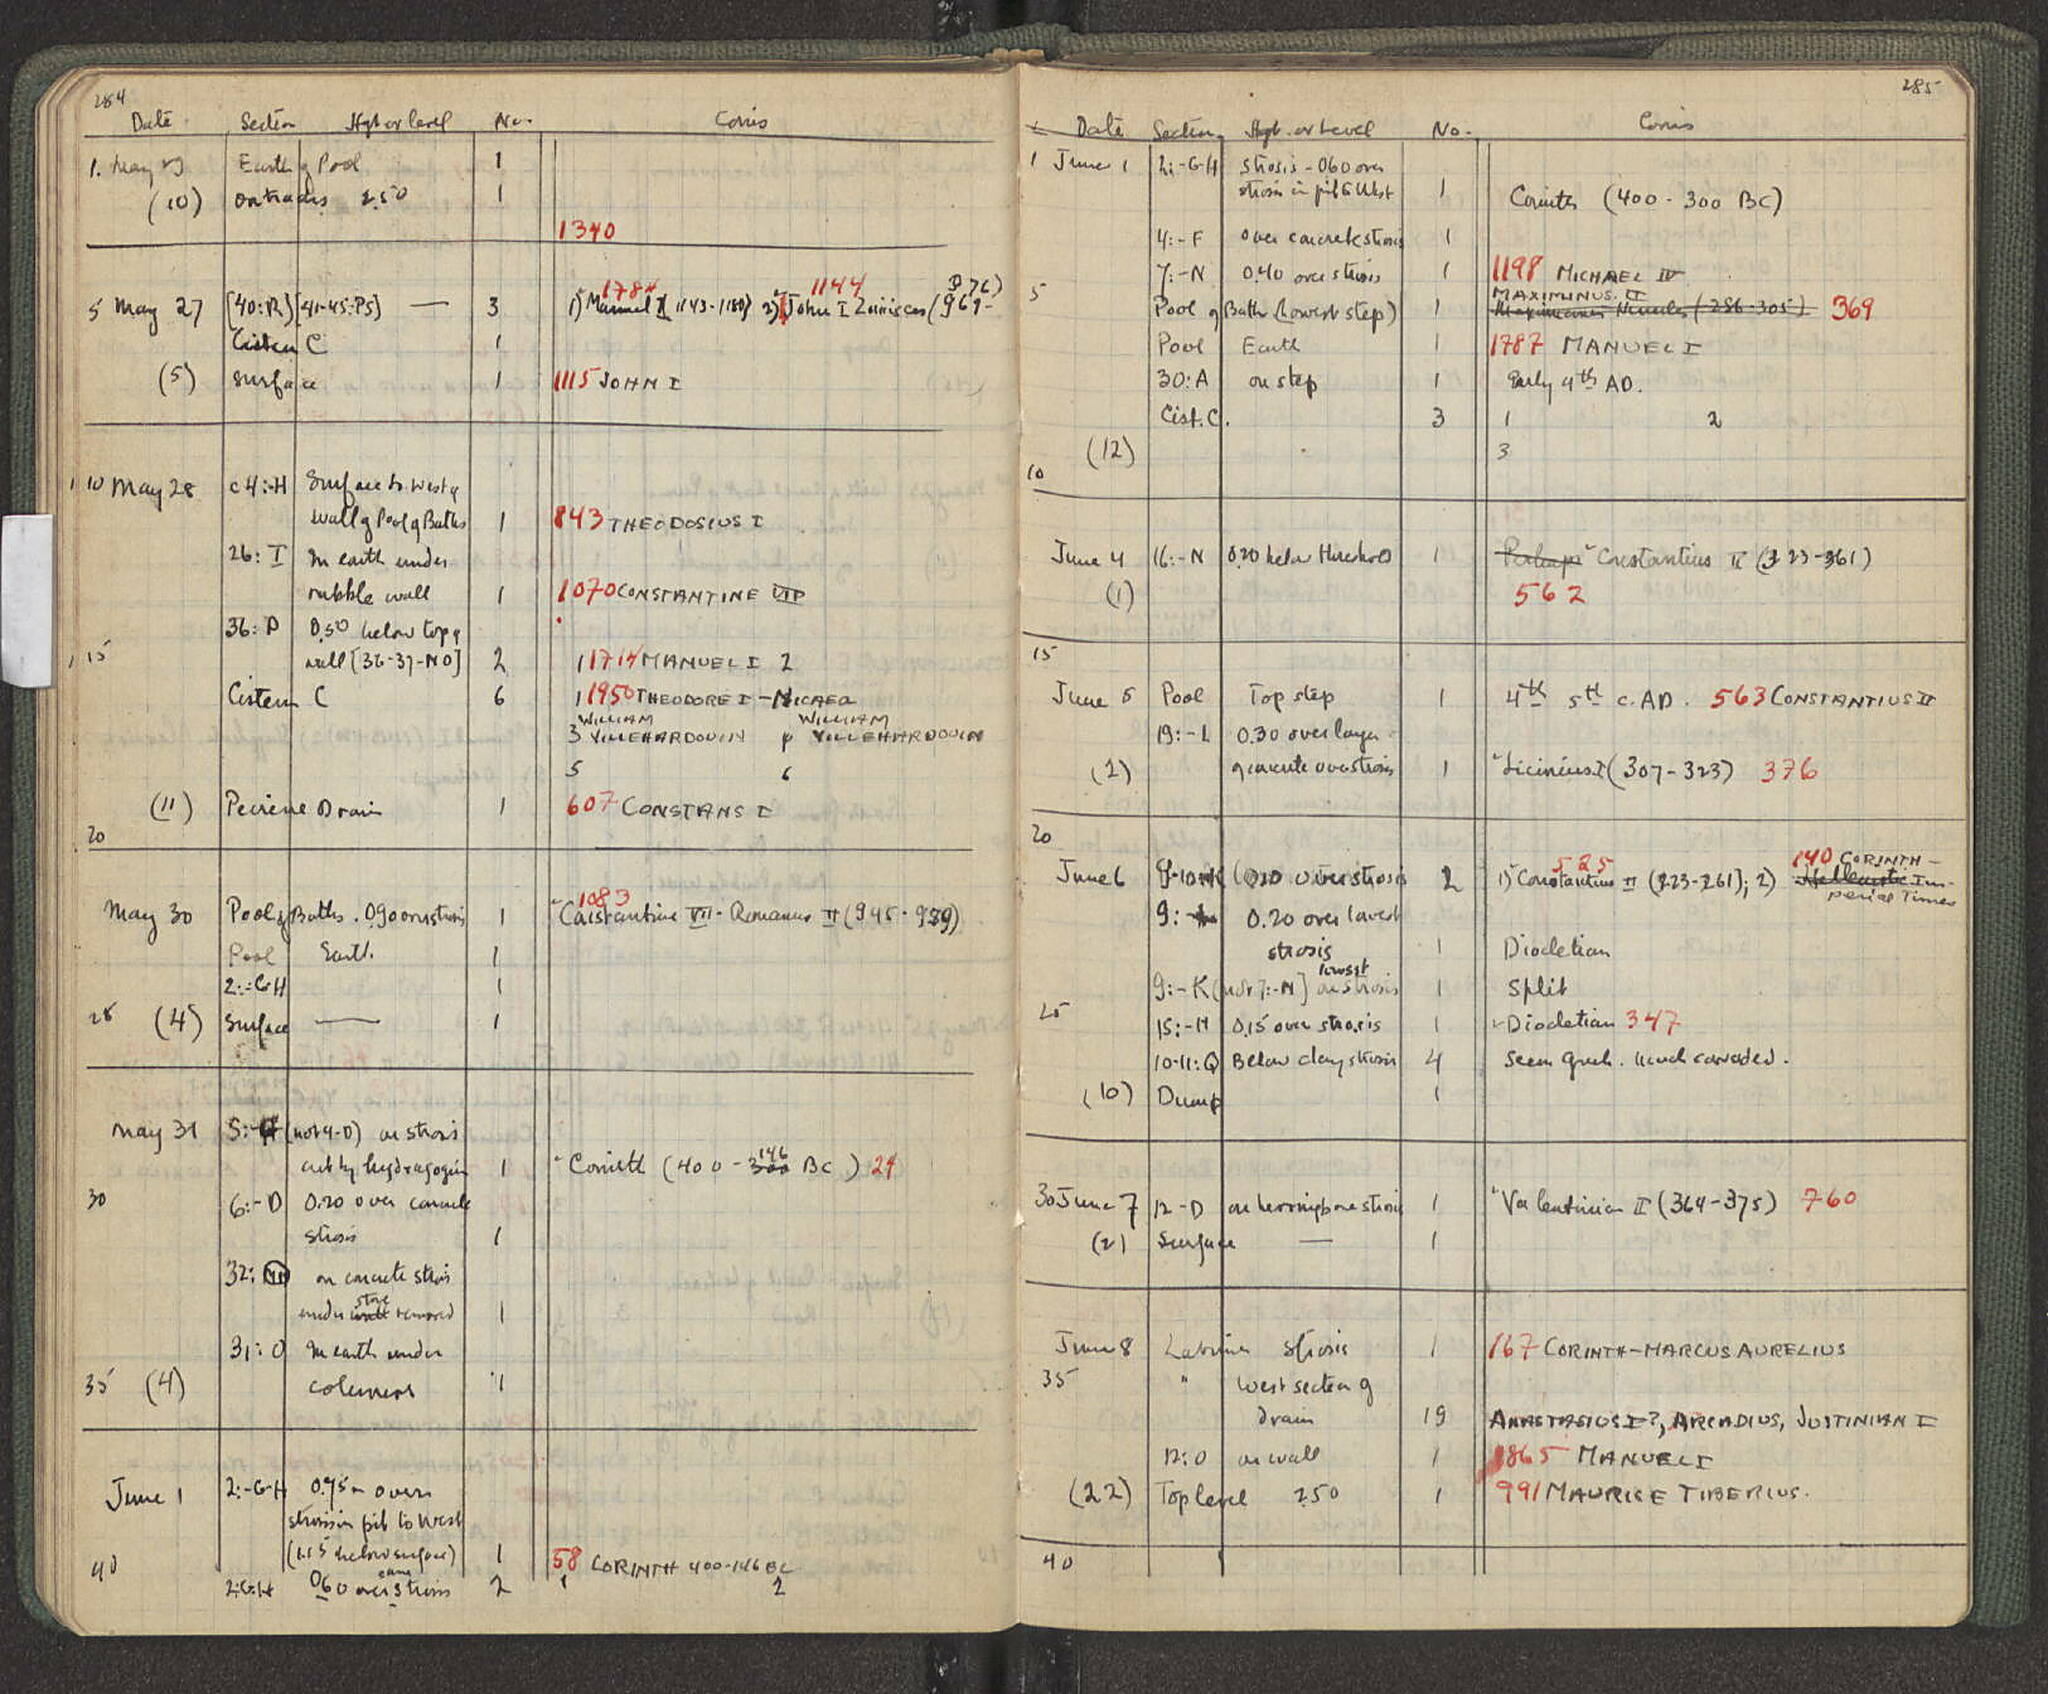 284
Date Section Hght or level No. Coins
1. May 25 Earth of Pool 1
(10) ontrades 2.50 1
1340
1784 1144 976)
5 May 27 [40:R] [41-45:PS] — 3 1) Manuel I (1143-1180) 2) John I Zimisces (969-
Cistern C 1
(5) Surface 1 1115 JOHN I
10 May 28 c4:-H Surface to West of
wall of Pool of Baths 1 843 THEODOSIUS I
26: I In earth under
rubble wall 1 1070 CONSTANTINE VII
36: P 0.50 below top of
15 wall [36-37-NO] 2 1 1714 MANUEL I 2
Cistern C 6 1 1950 THEODORE I - NICAEA
WILLIAM WILLIAM
3 VILLEHARDOUIN 4 VILLEHARDOUIN
5 6
(11) Peirene Drain 1 607 CONSTANS I
20
1083
May 30 Pool of Baths. 0.90 over strosis 1 Constantine VII - Romanus II (945-959)
Pool Earth 1
2:-GH 1
25 (4) Surface — 1
May 31 5:- (not 4-D) on strosis
cut by hydragogion 1 Corinth (400-300 146 BC) 24
30 6:-D 0.20 over concrete
strosis 1
32: on concrete strosis
under wall stone removed 1
31: O In earth under
35 (4) columns 1
June 1 2:-G-H 0.75m over
strosis in pit to West
40 (1.15 below surface) 1 58 CORINTH 400-146 BC
2:G:H 0.60 over same strosis 2 1 2
285
Date Section Hght. or Level No. Coins
1 June 1 2:-G-H strosis - 060 over
strosis in pit to West 1 Corinth (400-300 BC)
4:-F over concrete strosis 1
7:-N 0.40 over strosis 1 1198 MICHAEL IV
5 MAXIMINUS II
Pool of Baths (lowest step) 1 Maximianus Hercules (286-305) 369
Pool Earth 1 1787 MANUEL I
30:A on step 1 Early 4th AD.
Cist. C. 3 1 2
(12) 3
10
June 4 16:-N 0.20 below threshold 1 Perhaps Constantius II (323-361)
(1) 562
15
June 5 Pool Top step 1 4th 5th c. AD. 563 CONSTANTIUS II
19:-L 0.30 over layer
(2) of concrete over strosis 1 Licinius I (307-323) 376
20
525 140 CORINTH -
June 6 9-10:-K 0.20 over strosis 2 1) Constantius II (323-361); 2) Hellenistic Im-
perial Times
9:- 0.20 over lowest
strosis 1 Diocletian
9:-K (not 7:-N] on lowest strosis 1 Split
25 15:-H 0.15 over strosis 1 Diocletian 347
10-11:Q Below clay strosis 4 Seem greek. Much corroded.
(10) Dump 1
30 June 7 12-D on herringbone strosis 1 Valentinian II (364-375) 760
(2) Surface — 1
June 8 Latrine Strosis 1 167 CORINTH-MARCUS AURELIUS
35 " West section of
drain 19 ANASTASIUS I?, ARCADIUS, JUSTINIAN I
12:O on wall 1 1865 MANUEL I
(22) Top level 2.50 1 991 MAURICE TIBERIUS.
40